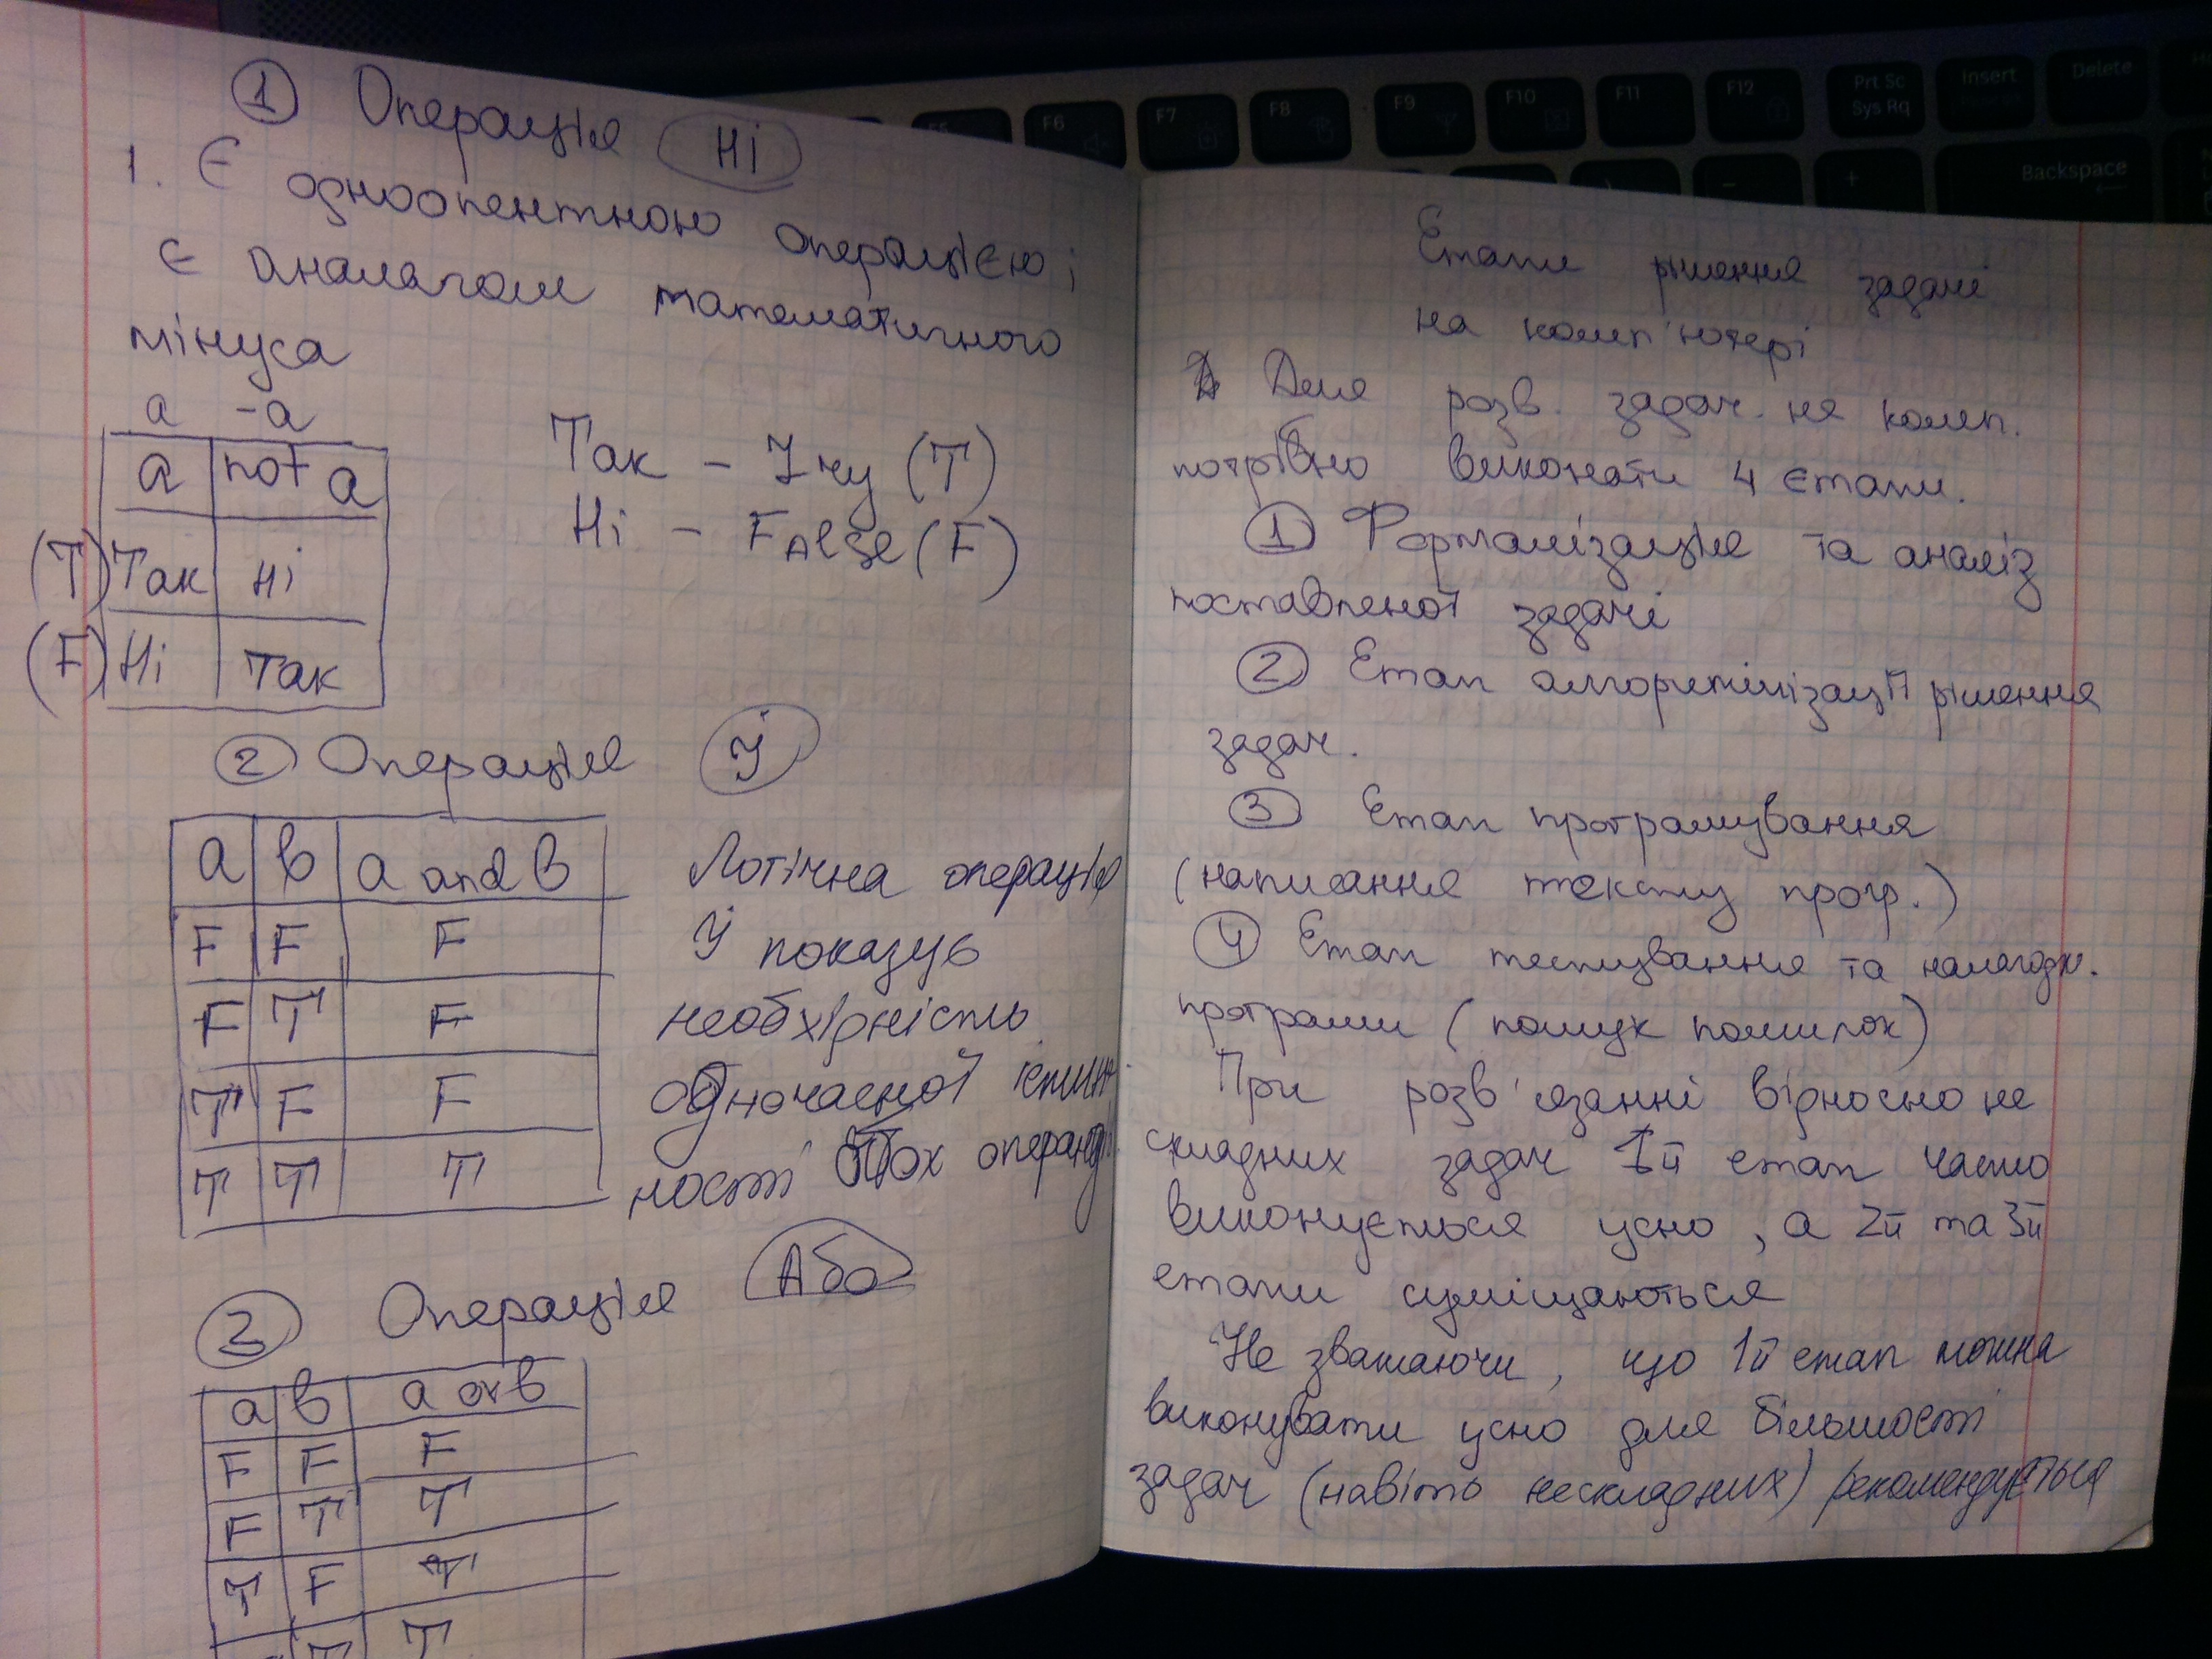 ① Операція Ні
1. Є одноопентною операцією;
є аналагом математичного
мінуса
a -a
a not a
(T) Так Ні
(F) Ні Так
Так - Iчу (T)
Ні - FAlse (F)
② Операція Й
a b a and b
F F F
F T F
T F F
T T T
Логічна операція
Й показує
необхідність
одночасної істин-
ності обох операндів
③ Операція Або
a b a or b
F F F
F T T
T F T
T T
Етапи рішення задачі
на комп'ютері
Для розв. задач. на комп.
потрібно виконати 4 етапи.
① Формалізація та аналіз
поставленої задачі
② Етап алгоритмізації рішення
задач.
③ Етап програмування
(написання тексту прогр.)
④ Етап тестування та налагодж.
програми (пошук помилок)
При розв'язанні відносно не
складних задач 1й етап часто
виконується усно, а 2й та 3й
етапи суміщаються
Не зважаючи, що 1й етап можна
виконувати усно для більшості
задач (навіть нескладних) рекомендується
F5
F6
F7
F8
F9
F10
F11
F12
Prt Sc
Sys Rq
Insert
Delete
- +
Backspace